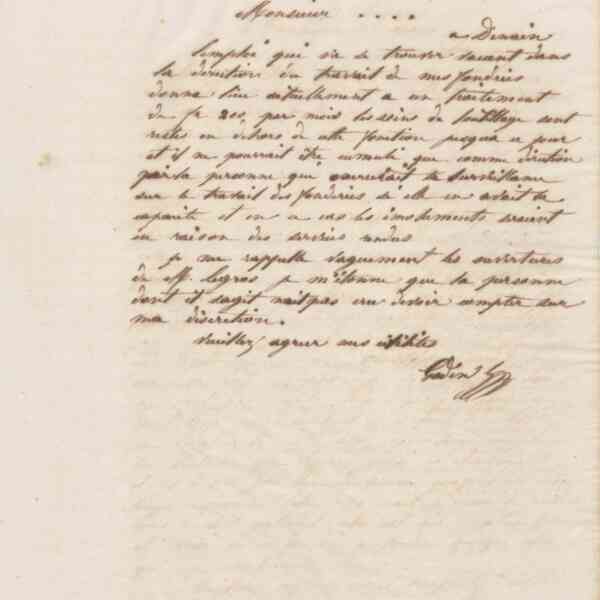 Monsieur ....
a Denain
l'emploi qui va se trouver vacant dans
la direction du travail de mes fonderies
donne lieu actuellement a un traitement
de fr 200, par mois les soins de l'outillage sont
restés en dehors de cette fonction jusqua ce jour
et il ne pourrait être cumulé que comme direction
par la personne que aurait la surveillance
sur le travail des fonderies si elle en avait la
capacité et en ce cas les émoluments seraient
en raison des services rendus
je me rappelle vaguement les ouvertures
de M. Legros je m'étonne que la personne
dont il sagit nait pas cru devoir compter sur
ma discretion.
Veuillez agreer mes civilités
Godin